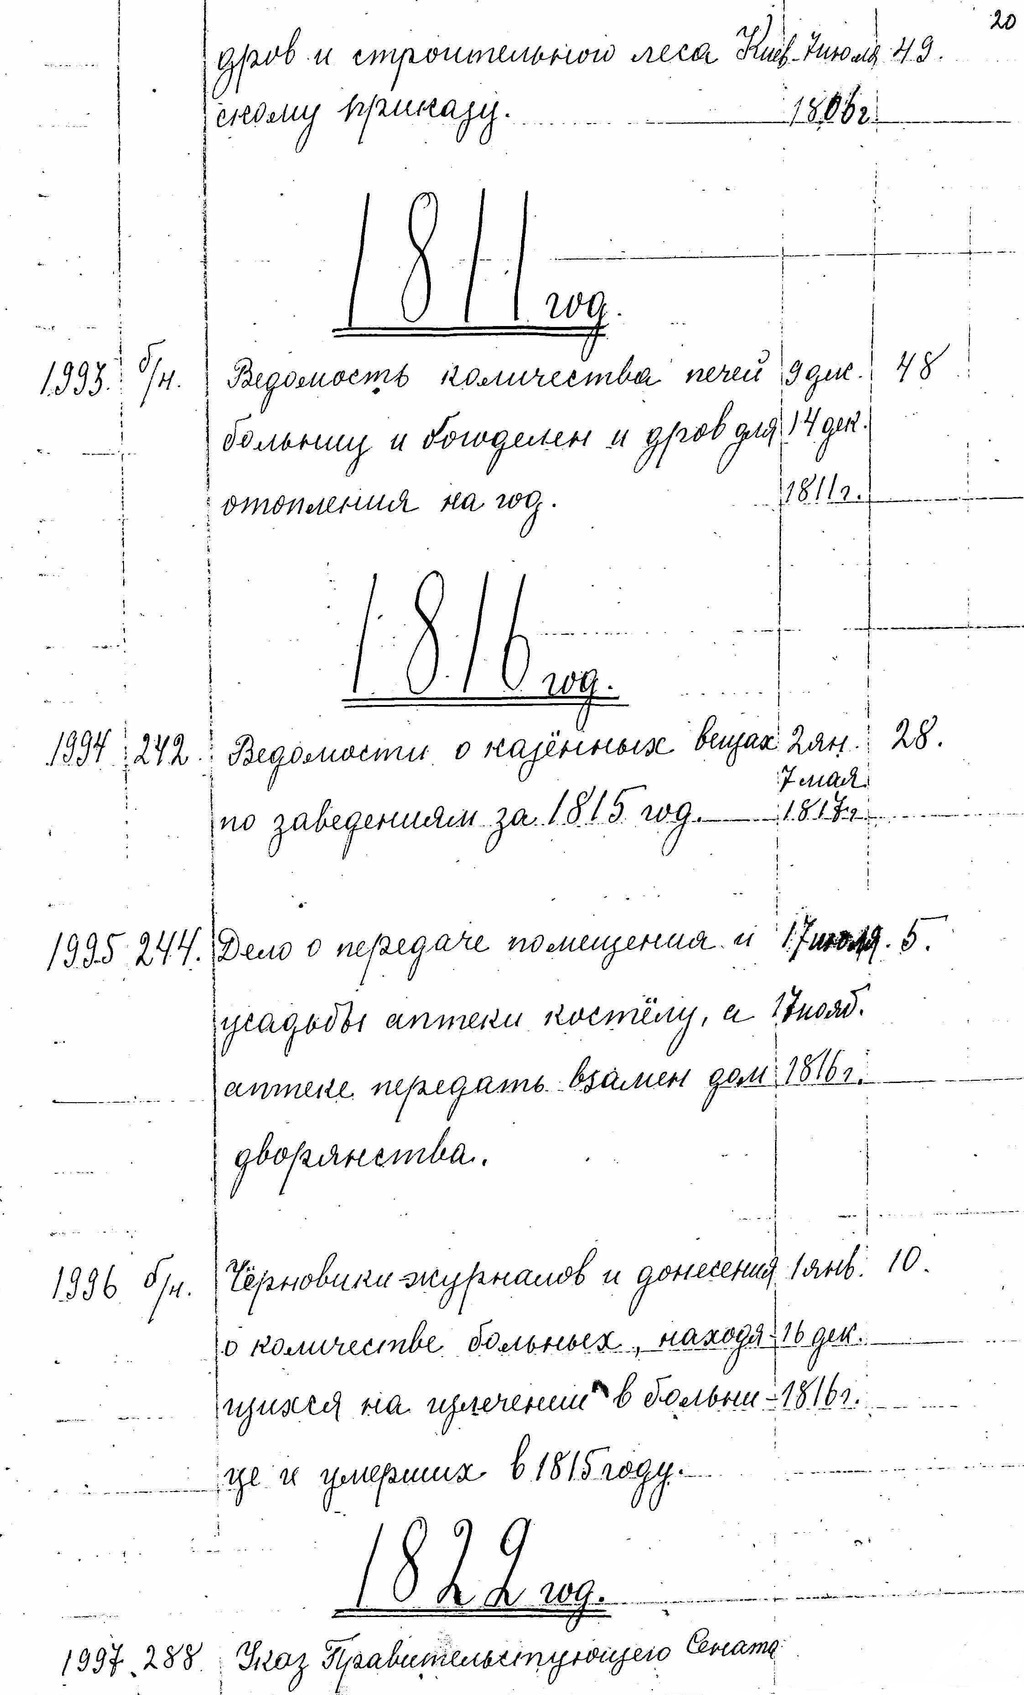 20
дров и строительного леса Киев- 7 июля 49.
скому приказу. 1806 г.
1811 год.
1993. б/н. Ведомость количества печей 9 дек. 48
больниц и богоделен и дров для 14 дек.
отопления на год. 1811 г.
1816 год.
1994 242. Ведомости о казённых вещах 2 ян. 28.
7 мая
по заведениям за 1815 год. 1817 г
1995 244. Дело о передаче помещения и 17 июля. 5.
усадьбы аптеки костёлу, а 17 нояб.
аптеке передать взамен дом 1816 г.
дворянства.
1996 б/н. Чёрновики журналов и донесения 1 янв. 10.
о количестве больных, находя- 16 дек.
щихся на излечении в больни- 1816 г.
це и умерших в 1815 году.
1822 год.
1997. 288 Указ Правительствующего Сената